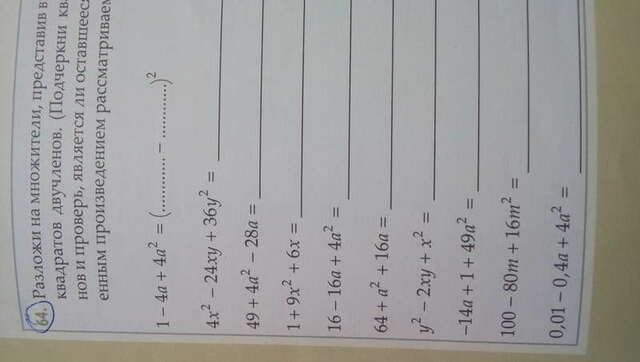 64. Разложи на множители, представив в
квадратов двучленов. (Подчеркни кв
нов и проверь, является ли оставшееся
енным произведением рассматриваем
1 − 4a + 4a² = (............ − ............)²
4x² − 24xy + 36y² =
49 + 4a² − 28a =
1 + 9x² + 6x =
16 − 16a + 4a² =
64 + a² + 16a =
y² − 2xy + x² =
−14a + 1 + 49a² =
100 − 80m + 16m² =
0,01 − 0,4a + 4a² =